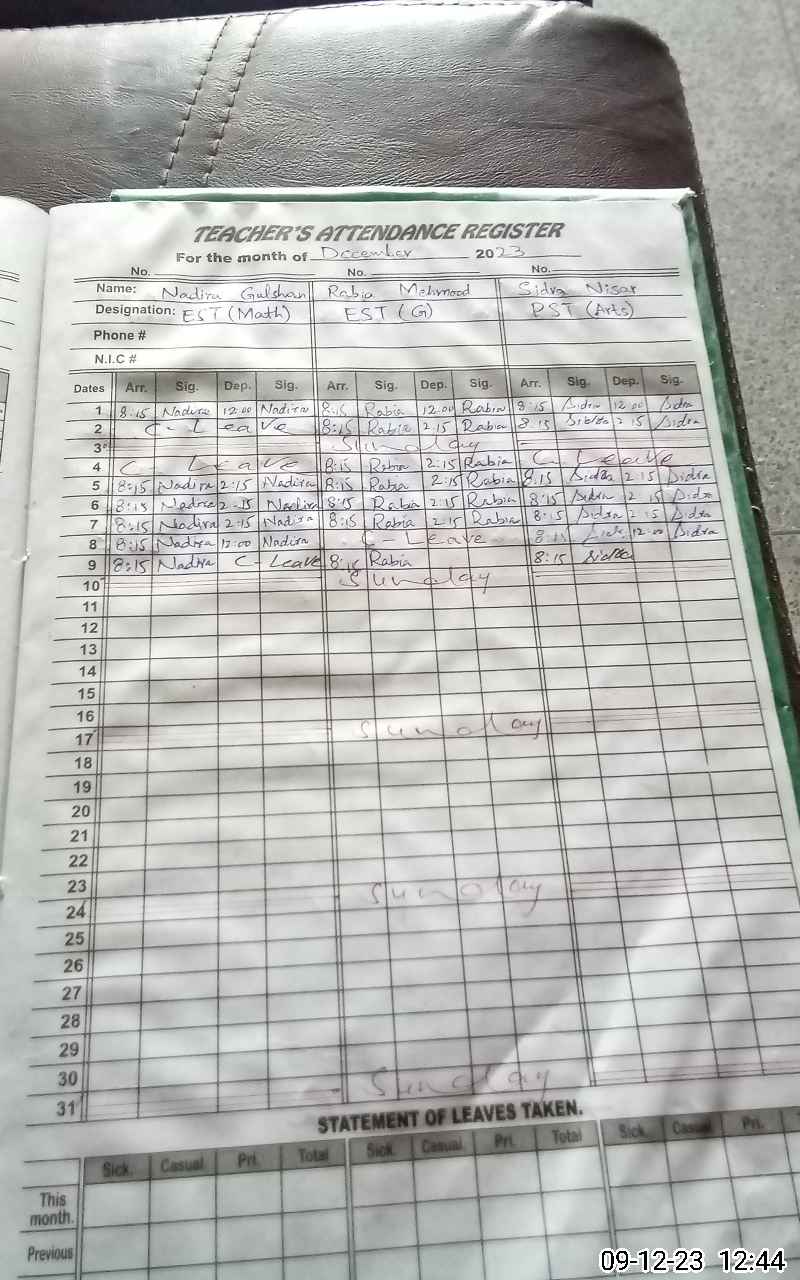 TEACHER'S ATTENDANCE REGISTER
For the month of December 2023
No. No. No.
Name: Nadira Gulshan Rabia Mehmood Sidra Nisar
Designation: EST (Math) EST (G) PST (Arts)
Phone #
N.I.C #
Dates Arr. Sig. Dep. Sig. Arr. Sig. Dep. Sig. Arr. Sig. Dep. Sig.
1 8:15 Nadira 12:00 Nadira 8:15 Rabia 12:00 Rabia 8:15 Sidra 12:00 Sidra
2 C-Leave 8:15 Rabia 2:15 Rabia 8:15 Sidra 2:15 Sidra
3 Sunday
4 C-Leave 8:15 Rabia 2:15 Rabia C-Leave
5 8:15 Nadira 2:15 Nadira 8:15 Rabia 2:15 Rabia 8:15 Sidra 2:15 Sidra
6 8:15 Nadira 2-15 Nadira 8:15 Rabia 2:15 Rabia 8:15 Sidra 2:15 Sidra
7 8:15 Nadira 2:15 Nadira 8:15 Rabia 2:15 Rabia 8:15 Sidra 2:15 Sidra
8 8:15 Nadira 12:00 Nadira C-Leave 8:15 Sidra 12:00 Sidra
9 8:15 Nadira C-Leave 8:15 Rabia 8:15 Sidra
10 Sunday
11
12
13
14
15
16
17 Sunday
18
19
20
21
22
23
24 Sunday
25
26
27
28
29
30
31 Sunday
STATEMENT OF LEAVES TAKEN.
Sick. Casual Pri. Total Sick. Casual. Pri. Total Sick. Casual Pri.
This
month.
Previous
09-12-23 12:44